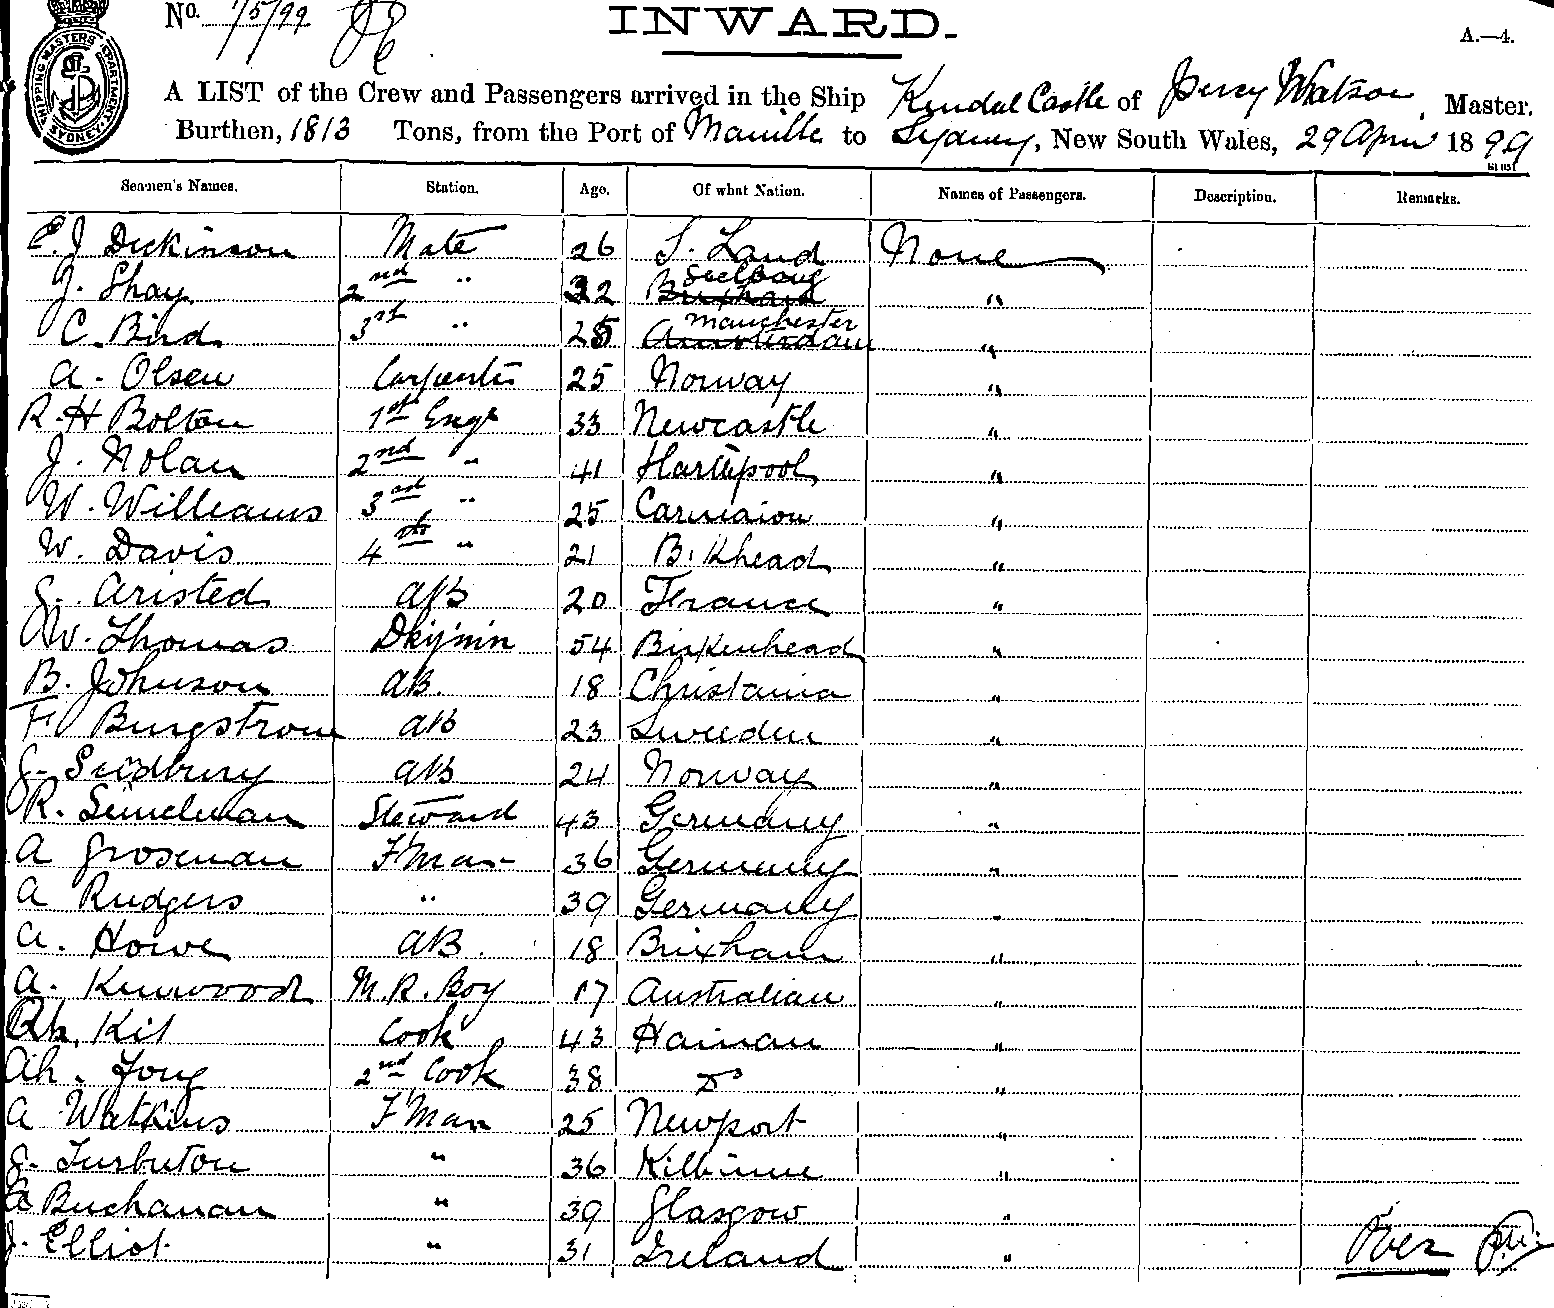 No. 1/5/99
INWARD.
A.—4.
SHIPPING MASTERS DEPARTMENT SYDNEY
A LIST of the Crew and Passengers arrived in the Ship Kendal Castle of Percy Watson, Master.
Burthen, 1813 Tons, from the Port of Manille to Sydney, New South Wales, 29 April 1899
Seamen's Names. Station. Age. Of what Nation. Names of Passengers. Description. Remarks.
E. J Dickinson Mate 26 S. Land None
J. Shay 2nd " 32 "
C. Bird 3rd " 25 Manchester "
A. Olsen Carpenter 25 Norway "
R. H Bolton 1st Engr 33 Newcastle "
J. Nolan 2nd " 41 Hartlepool "
W. Williams 3rd " 25 "
W. Davis 4th " 21 B. Khead "
J. Aristed AB 20 France "
W. Thomas 54 Birkenhead "
B. Johnson AB. 18 Christania "
F Burgstrom AB 23 Sweeden "
J. Sudbury AB 24 Norway "
R. Steward 43 Germany "
A Grosman F'Man 36 Germany "
A Rudgers " 39 Germany "
A. Howe AB. 18 Brixham "
A. Kenwood M. R. Boy 17 Australian "
Ah. Kit Cook 43 Hainan "
Ah. Fong 2nd Cook 38 Do "
A Watkins F'Man 25 Newport "
J. Turbuton " 36 "
A Buchanan " 39 Glasgow "
J. Elliot " 31 Ireland " Over